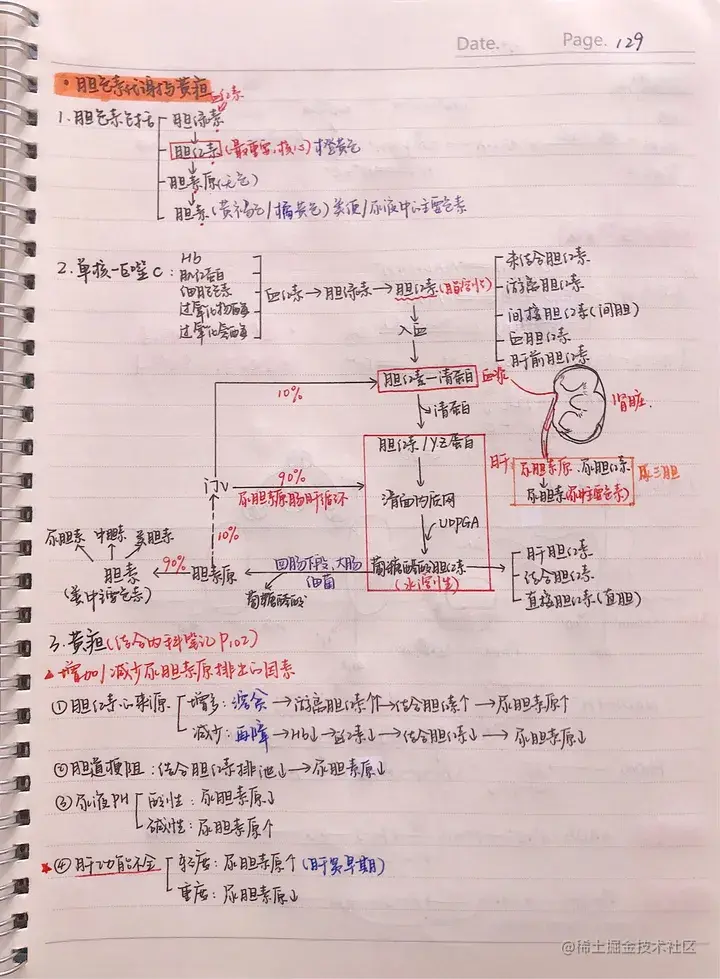 Date.
Page. 129
·胆色素代谢与黄疸
血红素
1.胆色素包括 胆绿素
胆红素(最重要,核心) 橙黄色
胆素原(无色)
胆素(黄褐色/橘黄色) 粪便/尿液中主要色素
2.单核-巨噬C:
Hb
肌红蛋白
细胞色素
过氧化物酶
过氧化氢酶
血红素→胆绿素→胆红素(脂溶性)
未结合胆红素
游离胆红素
间接胆红素(间胆)
血胆红素
肝前胆红素
入血
胆红素-清蛋白 血浆
清蛋白
肾脏
10%
胆红素/Y.Z蛋白
肝
尿胆素原.尿胆红素
尿胆素(尿中主要色素)
尿三胆
门V
90%
尿胆素原肠肝循环
滑面内质网
UDPGA
10%
尿胆素 中胆素 粪胆素
胆素
(粪中主要色素)
90%
胆素原
回肠下段、大肠
细菌
葡糖醛酸
葡糖醛酸胆红素
(水溶性)
肝胆红素
结合胆红素
直接胆红素(直胆)
3.黄疸(结合内科笔记P102)
▲增加/减少尿胆素原排出的因素
①胆红素的来源 增多:溶贫→游离胆红素↑→结合胆红素↑→尿胆素原↑
减少:再障→Hb↓→血红素↓→结合胆红素↓→尿胆素原↓
②胆道梗阻:结合胆红素排泄↓→尿胆素原↓
③尿液PH 酸性:尿胆素原↓
碱性:尿胆素原↑
★④肝功能不全 轻度:尿胆素原↑(肝炎早期)
重度:尿胆素原↓
@稀土掘金技术社区